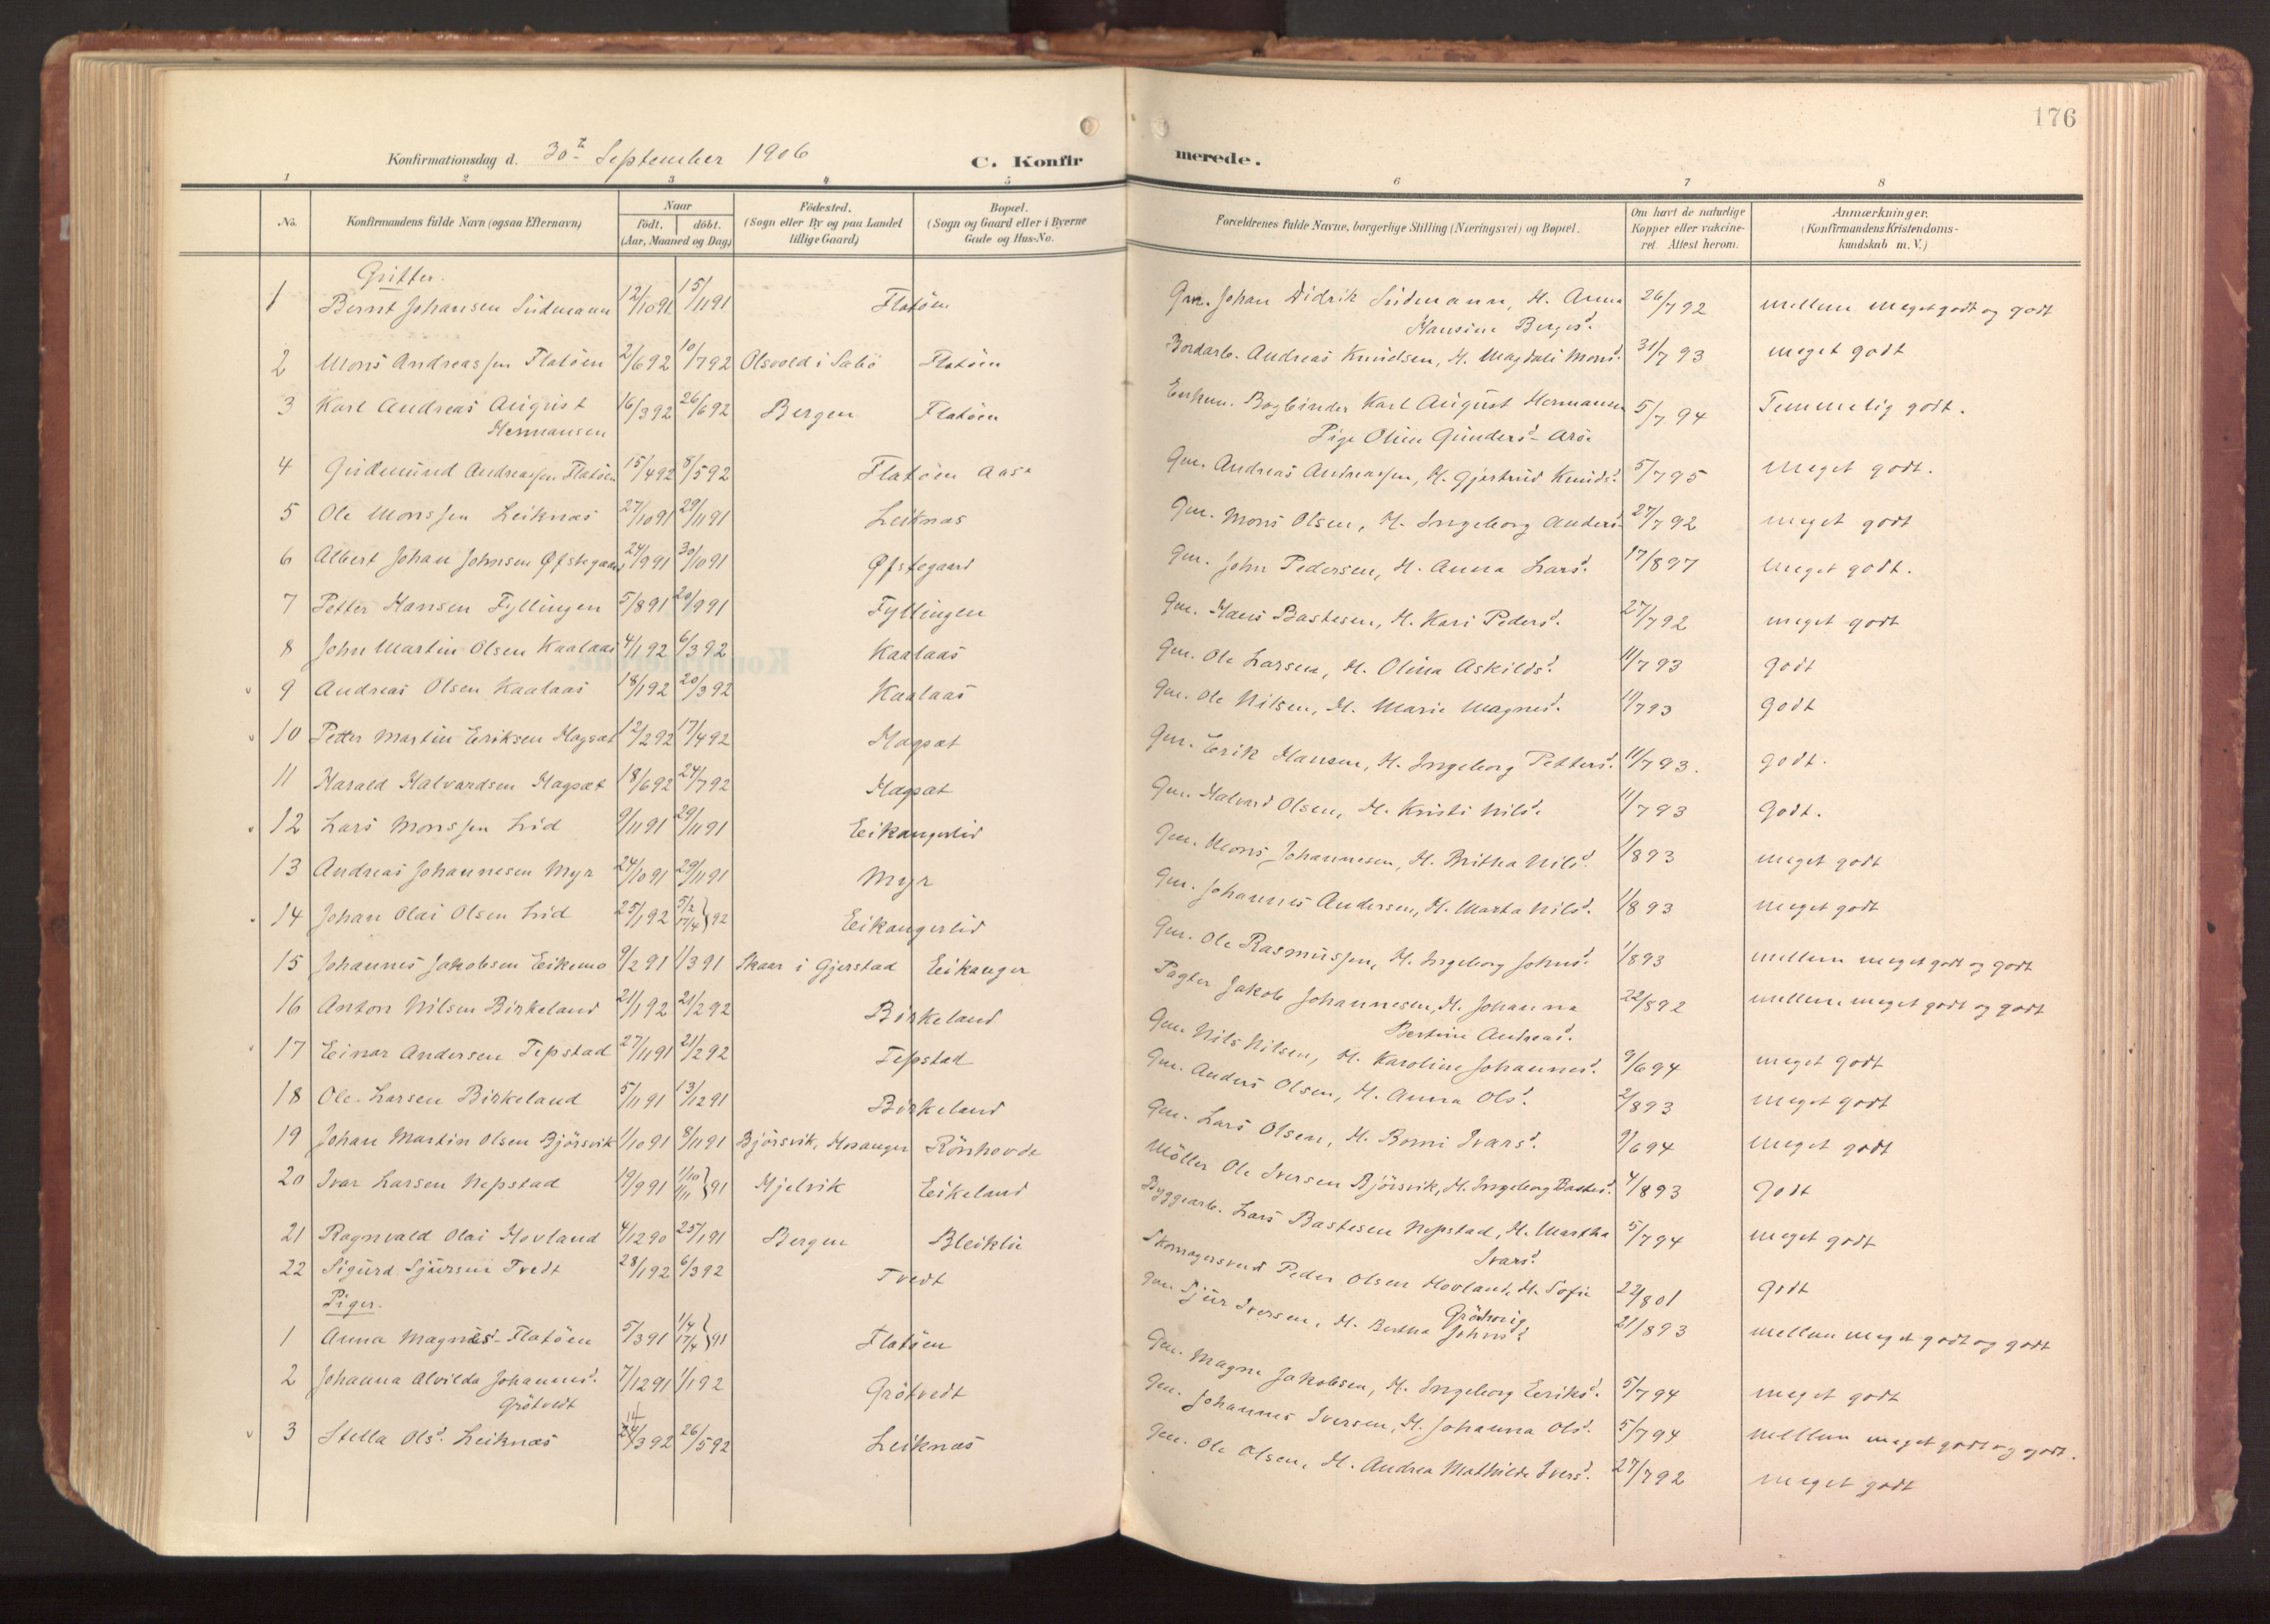 176
Konfirmationsdag d. 30t September 1906
C. Konfirmerede.
1 2 3 4 5 6 7 8
No. Konfirmandens fulde Navn (ogsaa Efternavn) Naar født. døbt. (Aar, Maaned og Dag) Fødested. (Sogn eller By og paa Landet tillige Gaard) Bopæl. (Sogn og Gaard eller i Byerne Gade og Hus-No. Forældrenes fulde Navne, borgerlige Stilling (Næringsvei) og Bopæl. Om havt de naturlige Kopper eller vakcineret. Attest herom. Anmærkninger. (Konfirmandens Kristendomskundskab m. V.)
Gutter.
1 Bernt Johansen Südmann 12/10 91 15/11 91 Flatöen Gm. Johan Didrik Südmann, H. Anna 26/7 92 mellem meget godt og godt
Hansine Berges d.
2 Mons Andreassen Flatöen 2/6 92 10/7 92 Olsvold i Sæbö Flatöen Bordarb. Andreas Knudsen, H. Magdali Mons d. 31/7 93 meget godt
3 Karl Andreas August 16/3 92 26/6 92 Bergen Flatöen Bogbinder Karl August Hermansen 5/7 94 Temmelig godt.
Hermansen Pige Oline Gunders d.
4 Gudmund Andreassen Flatöen 15/4 92 8/5 92 Flatöen Gm. Andreas Andreassen, H. Gjertrud Knuds d. 5/7 95 meget godt.
5 Ole Monssen Leiknæs 27/10 91 29/11 91 Leiknæs Gm. Mons Olsen, H. Ingeborg Anders d. 27/7 92 meget godt
6 Albert Johan Johnsen Øfstegaard 24/9 91 30/10 91 Øfstegaard Gm. John Pedersen, H. Anna Lars d. 17/8 97 meget godt.
7 Petter Hansen Fyllingen 5/8 91 20/9 91 Fyllingen Gm. Hans Bastesen, H. Kari Peders d. 27/7 92 meget godt
8 John Martin Olsen Kaalaas 4/1 92 6/3 92 Kaalaas Gm. Ole Larsen, H. Olina Askilds d. 11/7 93 godt
9 Andreas Olsen Kaalaas 18/1 92 20/3 92 Kaalaas Gm. Ole Nilsen, H. Marie Magnes d. 11/7 93 godt
10 Petter Martin Eriksen Hagsæt 12/2 92 17/4 92 Hagsæt Gm. Erik Hansen, H. Ingeborg Petters d. 11/7 93. godt.
11 Harald Halvardsen Hagsæt 18/6 92 24/7 92 Hagsæt Gm. Halvard Olsen, H. Kristi Nils d. 11/7 93 godt.
12 Lars Monssen Lid 9/11 91 29/11 91 Eikangerlid Gm. Mons Johannesen, H. Britha Nils d. 1/8 93 meget godt
13 Andreas Johannesen Myr 24/10 91 29/11 91 Myr Gm. Johannes Andersen, H. Marta Nils d. 1/8 93 meget godt
14 Johan Olai Olsen Lid 25/1 92 5/2 17/4 } 92 Eikangerlid Gm. Ole Rasmussen, H. Ingeborg Johns d. 1/8 93 mellem meget godt og godt
15 Johannes Jakobsen Eikemo 9/2 91 1/3 91 Skaar i Gjerstad Eikanger Pagter Jakob Johannesen, H. Johanna 22/8 92 mellem meget godt og godt
Bertine Andreas d.
16 Anton Nilsen Birkeland 21/1 92 21/2 92 Birkeland Gm. Nils Nilsen, H. Karoline Johannes d. 9/6 94 meget godt
17 Einar Andersen Tepstad 27/11 91 21/2 92 Tepstad Gm. Anders Olsen, H. Anna Ols d. 2/8 93 meget godt
18 Ole Larsen Birkeland 5/11 91 13/12 91 Birkeland Gm. Lars Olsen, H. Borni Ivars d. 9/6 94 meget godt
19 Johan Martin Olsen Bjørsvik 1/10 91 8/11 91 Bjørsvik, Hosanger Rönhovde Möller Ole Iversen Bjørsvik, H. Ingeborg Bastes d. 4/8 93 godt
20 Ivar Larsen Nepstad 19/9 91 1/10 1/11 } 91 Hjelvik Eikeland Byggearb. Lars Bastesen Nepstad, H. Martha 5/7 94 meget godt
Ivars d.
21 Ragnvald Olai Hovland 4/12 90 25/1 91 Bergen Bleiklie Skomagersvend Peder Olsen Hovland, H. Sofie 22/8 01 godt
22 Sigurd Sjursen Tvedt 28/1 92 6/3 92 Tvedt Gm. Sjur Iversen, H. Bertha Johns d. 21/8 93 mellem meget godt og godt
Piger.
1 Anna Magnes d. Flatöen 5/3 91 1/4 17/4 } 91 Flatöen Gm. Magne Jakobsen, H. Ingeborg Eeriks d. 5/7 94 meget godt
2 Johanna Alvilda Johannes d. 7/12 91 1/1 92 Grötvedt Gm. Johannes Iversen, H. Johanna Ols d. 5/7 94 mellem meget godt og godt.
Grötvedt
3 Stella Ols d. Leiknæs 24/3 92 26/5 92 Leiknæs Gm. Ole Olsen, H. Andrea Mathilde Ivers d. 27/7 92 meget godt